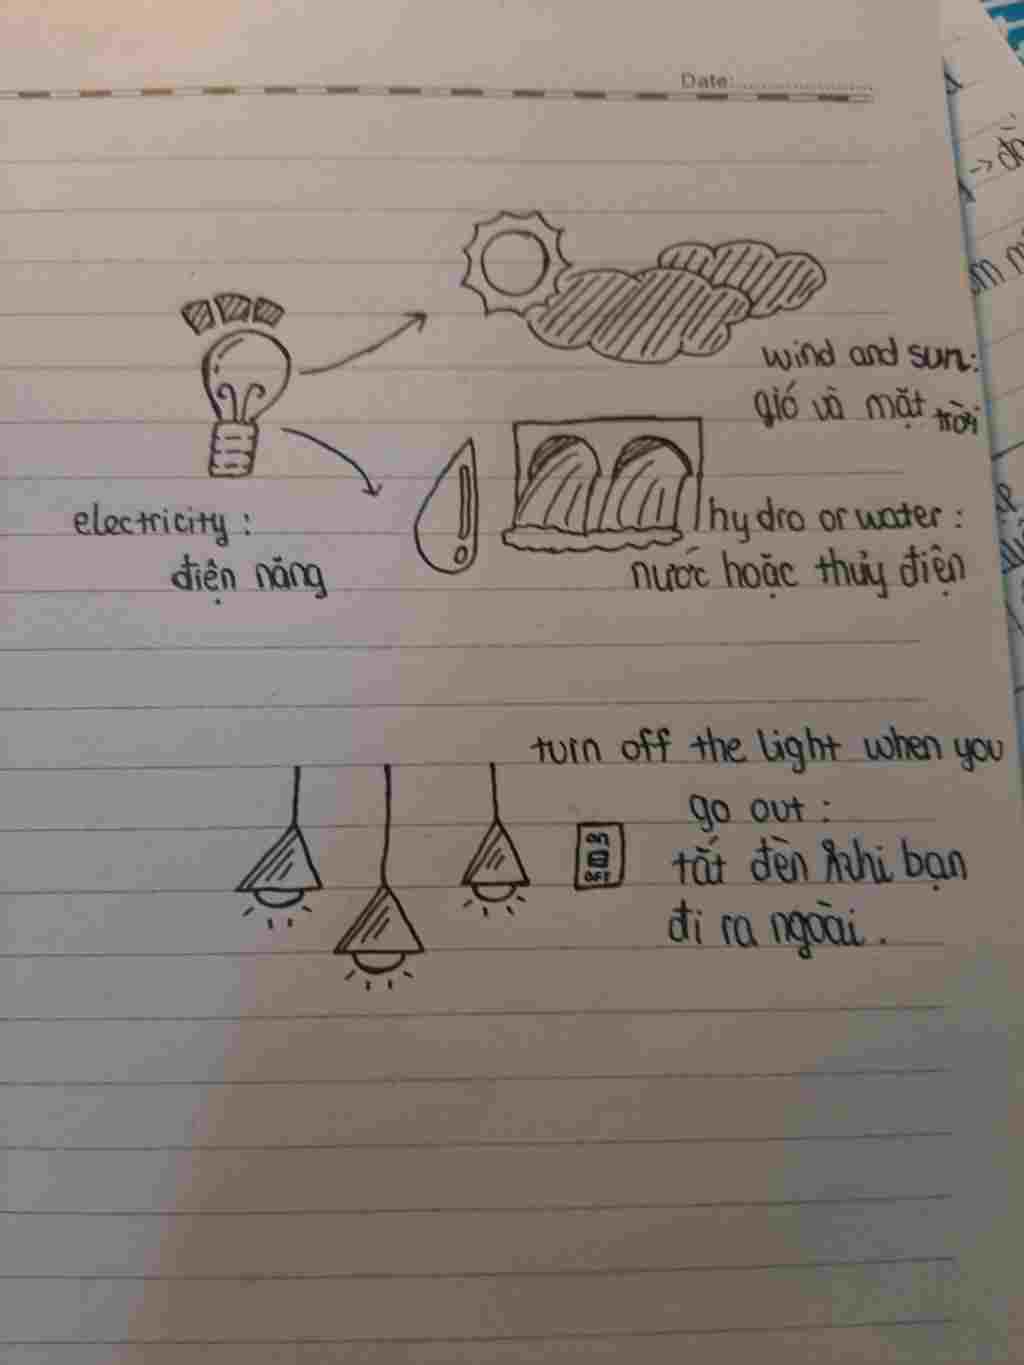 Date:
wind and sun:
gió và mặt trời
electricity:
điện năng
hydro or water:
nước hoặc thủy điện
turn off the light when you
go out:
tắt đèn khi bạn
đi ra ngoài.